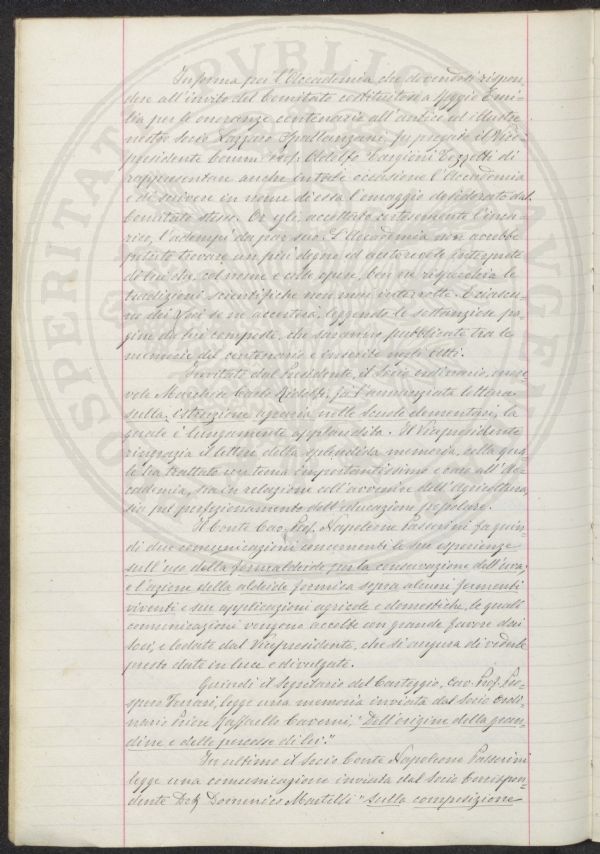 Informa poi l'Accademia che dovendosi rispon-
dere all'invito del Comitato costituitosi a Reggio Emi-
lia per le onoranze centenarie all'antico ed illustre
nostro socio Lazzaro Spallanzani, fu pregato il Vice-
presidente Comm. Prof. Adolfo Targioni Tozzetti di
rappresentare anche in tale occasione l'Accademia
e di scrivere in nome di essa l'omaggio desiderato dal
Comitato stesso. Or egli, accettato cortesemente l'inca-
rico, l'adempì da par suo. L'Accademia non avrebbe
potuto trovare un più degno ed autorevole interprete
di lui che, col nome e colle opere, ben ne
tradizioni scientifiche non mai interrotte. E ciascu-
no dei Soci se ne accerterà, leggendo le sottanziose pa-
gine da lui composte, che saranno pubblicate tra le
memorie del centenario e inserite negli Atti.
Invitato dal Presidente, il Socio ordinario
Marchese Carlo Ridolfi, fa l'annunziata lettura
sulla istruzione agraria nelle Scuole elementari, la
quale è lungamente applaudita. Il Vicepresidente
ringrazia il lettore della splendida memoria, nella qua-
le ha trattato un tema importantissimo e caro all'Ac-
cademia, sia in relazione coll'avvenire dell'Agricoltura,
sia pel perfezionamento dell'educazione popolare.
Il Conte Cav. Prof. Napoleone Passerini fa quin-
di due comunicazioni concernenti le sue esperienze
sull'uso della formaldeide per la conservazione dell'uva,
e l'azione della aldeide formica sopra alcuni fermenti
viventi e sue applicazioni agricole e domestiche, le quali
comunicazioni vengono accolte con grande favore dai
Soci, e lodate dal Vicepresidente, che si augura di vederle
presto date in luce e divulgate.
Quindi il Segretario del Carteggio, Cav. Prof. Pro-
spero Ferrari, legge una memoria inviata dal Socio Ordi-
nario Priore Raffaello Caverni, "Dell'origine della gran-
dine e delle percosse di lei".
In ultimo il socio Conte Napoleone Passerini
legge una comunicazione inviata dal Socio Corrispon-
dente Dott. Domenico Martelli "sulla composizione